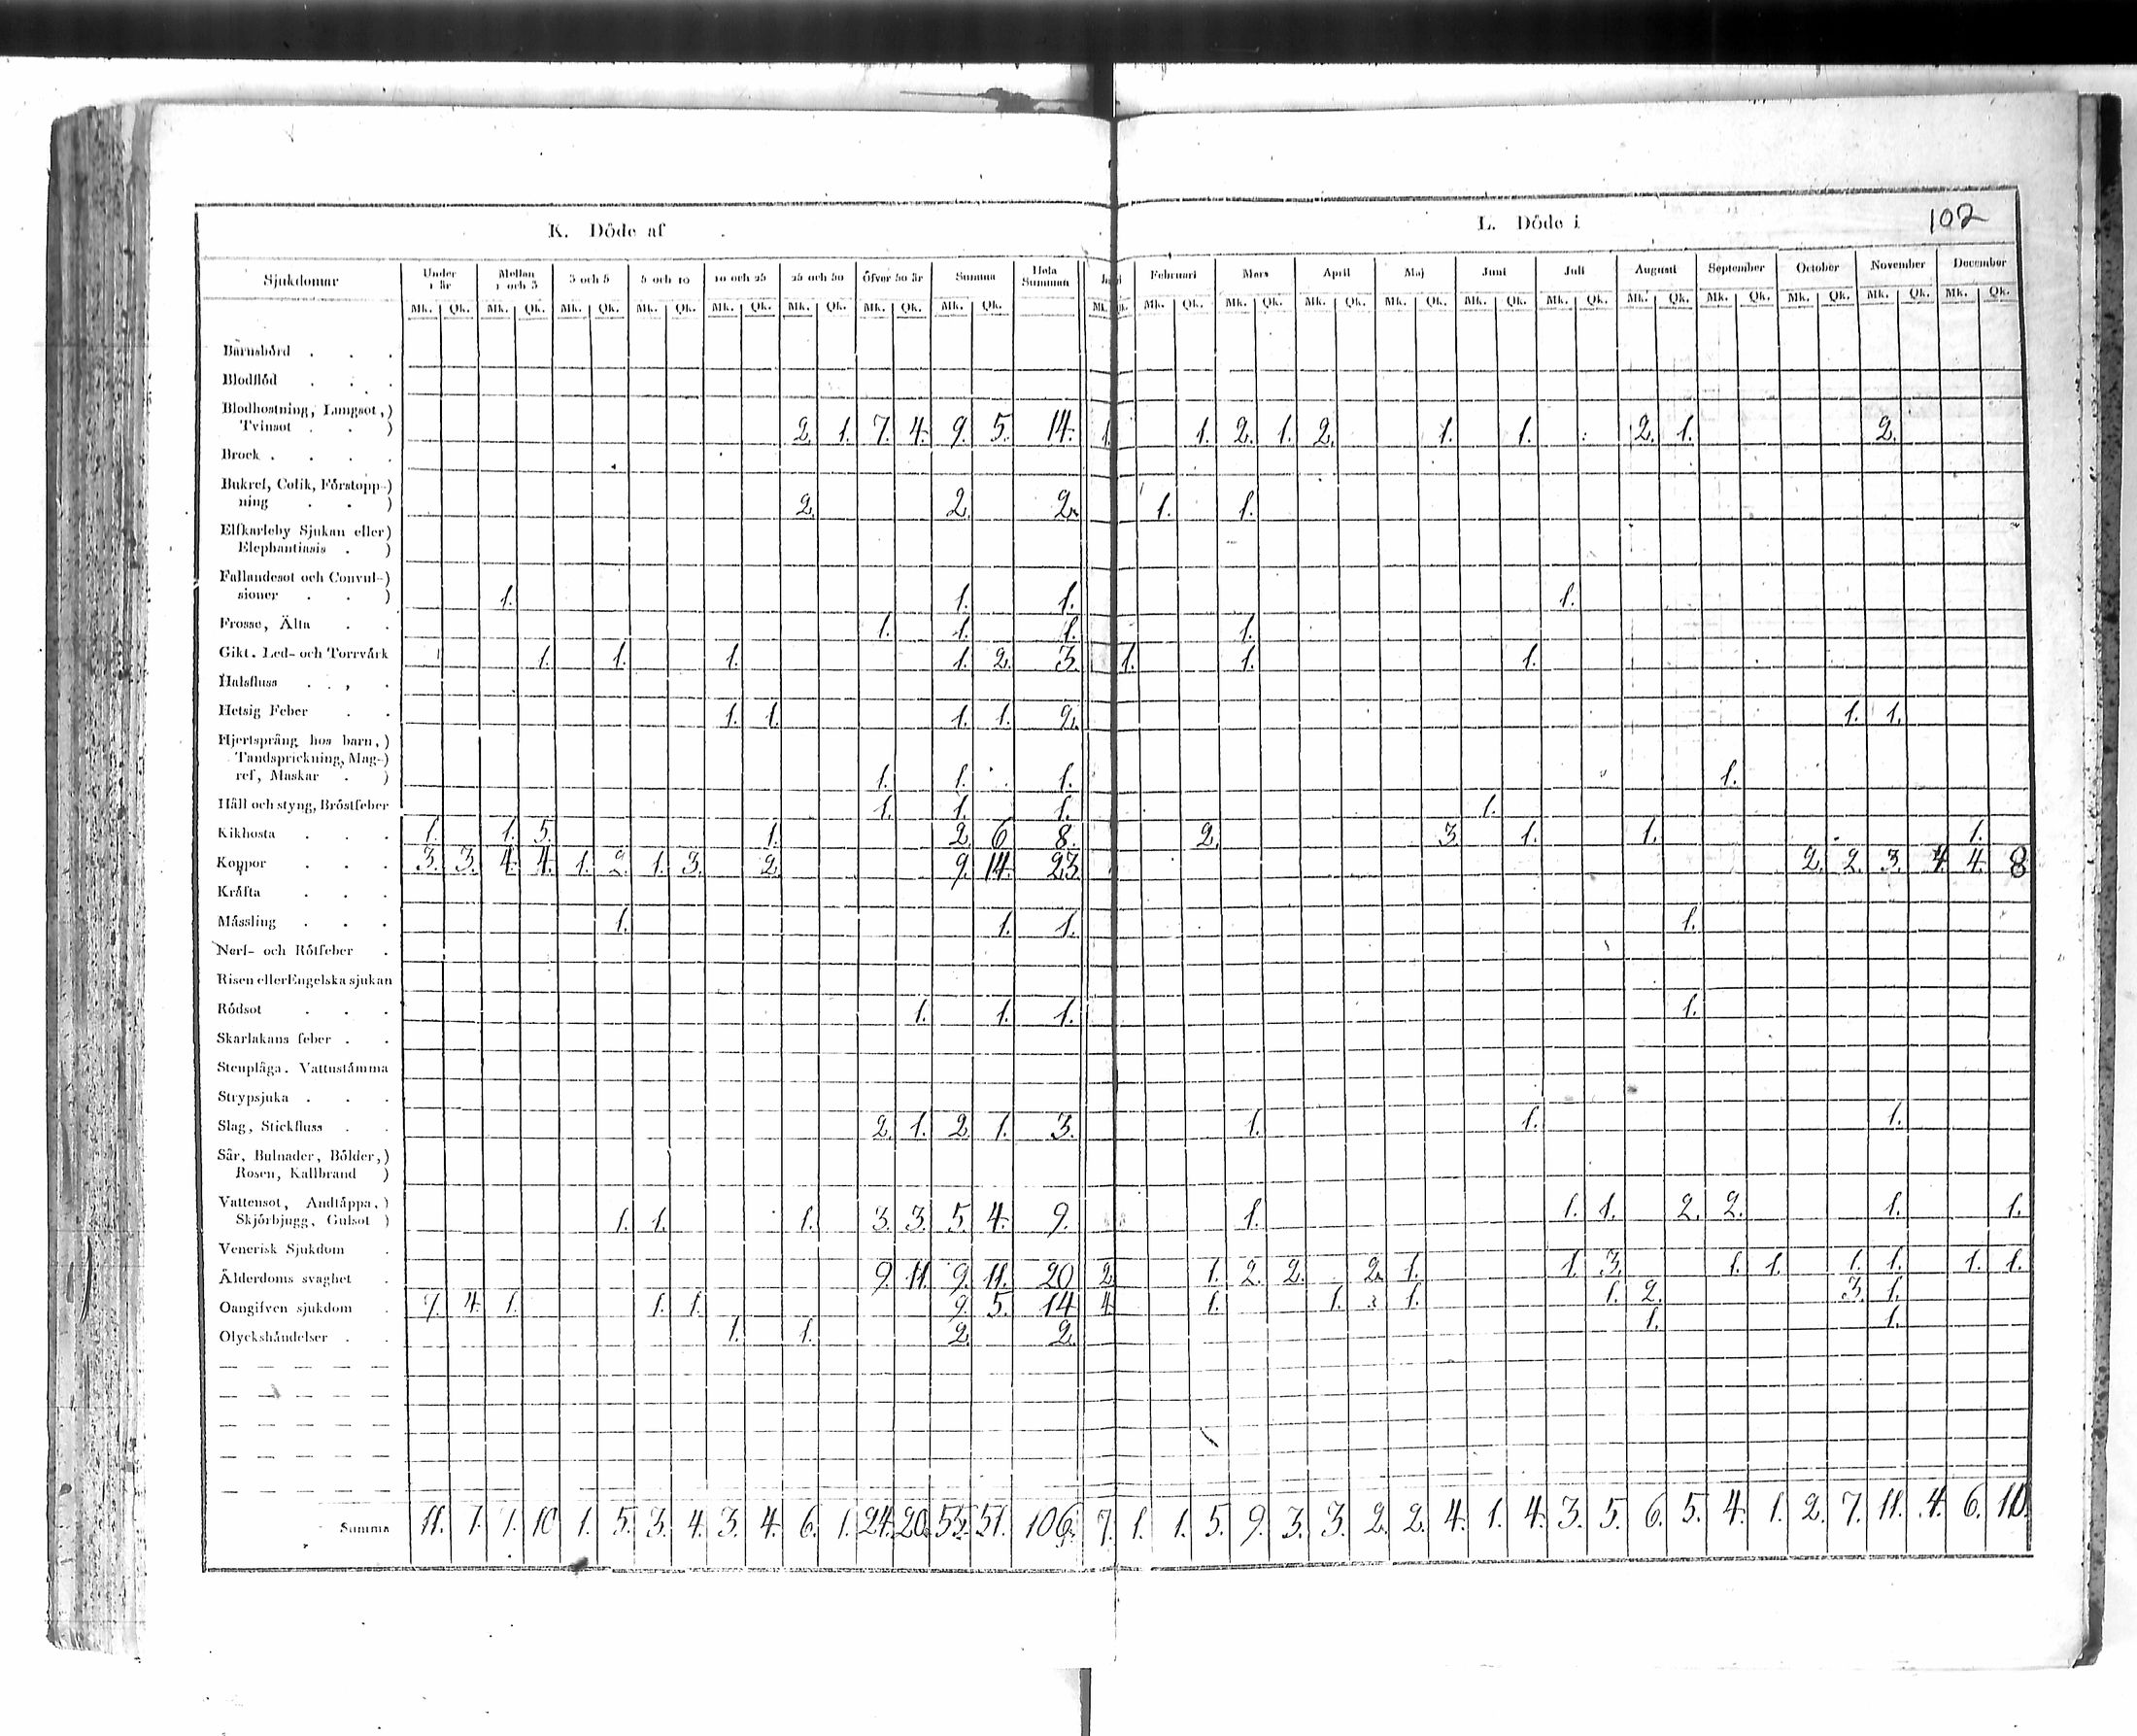 K. Döde af
L. Döde i
102
Sjukdomar Under 1 år Mellan 1 och 3 3 och 5 5 och 10 10 och 25 25 och 50 Öfver 50 år Summa Hela Summan Februari Mars April Maj Juni Juli Augusti September October November December
Mk. Qk. Mk. Qk. Mk. Qk. Mk. Qk. Mk. Qk. Mk. Qk. Mk. Qk. Mk. Qk. Mk. Qk. Mk. Qk. Mk. Qk. Mk. Qk. Mk. Qk. Mk. Qk. Mk. Qk. Mk. Qk. Mk. Qk. Mk. Qk. Mk. Qk. Mk. Qk.
Barnsbörd . . .
Blodflöd . . .
Blodhostning, Lungsot,)
Tvinsot . . ) 2. 1. 7. 4. 9. 5. 14. 1. 1. 2. 1. 2. 1. 1. 2. 1. 2.
Brock . . . .
Bukref, Colik, Förstopp-)
ning . . ) 2. 2. 2. 1. 1.
Elfkarleby Sjukan eller)
Elephantiasis . )
Fallandesot och Convul-)
sioner . . ) 1. 1. 1. 1.
Frosse, Älta . . 1. 1. 1. 1.
Gikt. Led- och Torrvärk 1. 1. 1. 1. 2. 3. 1. 1. 1.
Halsfluss . . , .
Hetsig Feber . . 1. 1. 1. 1. 2. 1. 1.
Hjertsprång hos barn,)
Tandsprickning, Mag-)
ref, Maskar . ) 1. 1. 1. 1.
Håll och styng, Bröstfeber 1. 1. 1. 1.
Kikhosta . . . 1. 1. 5. 1. 2. 6 8. 2. 3. 1. 1. 1.
Koppor . . . 3. 3. 4. 4. 1. 2. 1. 3. 2. 9. 14. 23. 2. 2. 3. 4. 4. 8
Kräfta . . .
Mässling . . . 1. 1. 1. 1.
Nerf- och Rötfeber .
Risen eller Engelska sjukan
Rödsot . . . 1. 1. 1. 1.
Skarlakans feber . .
Stenplåga. Vattustämma
Strypsjuka . . .
Slag, Stickfluss . . 2. 1. 2. 1. 3. 1. 1. 1.
Sår, Bulnader, Bölder,)
Rosen, Kallbrand )
Vattensot, Andtäppa,)
Skjörbjugg, Gulsot ) 1. 1. 1. 3. 3. 5. 4. 9. 1. 1. 1. 2. 2. 1. 1.
Venerisk Sjukdom .
Ålderdoms svaghet . 9. 11. 9. 11. 20 2. 1. 2. 2. 2. 1. 1. 3. 1. 1. 1. 1. 1. 1.
Oangifven sjukdom . 7. 4. 1. 1. 1. 9. 5. 14 4. 1. 1. 1. 1. 2. 3. 1.
Olyckshändelser . . 1. 1. 2. 2. 1. 1.
Summa 11. 7. 7. 10 1. 5. 3. 4. 3. 4. 6. 1. 24. 20. 51. 106. 7. 1. 1. 5. 9. 3. 3. 2. 2. 4. 1. 4. 3. 5. 6. 5. 4. 1. 2. 7. 11. 4. 6. 10.